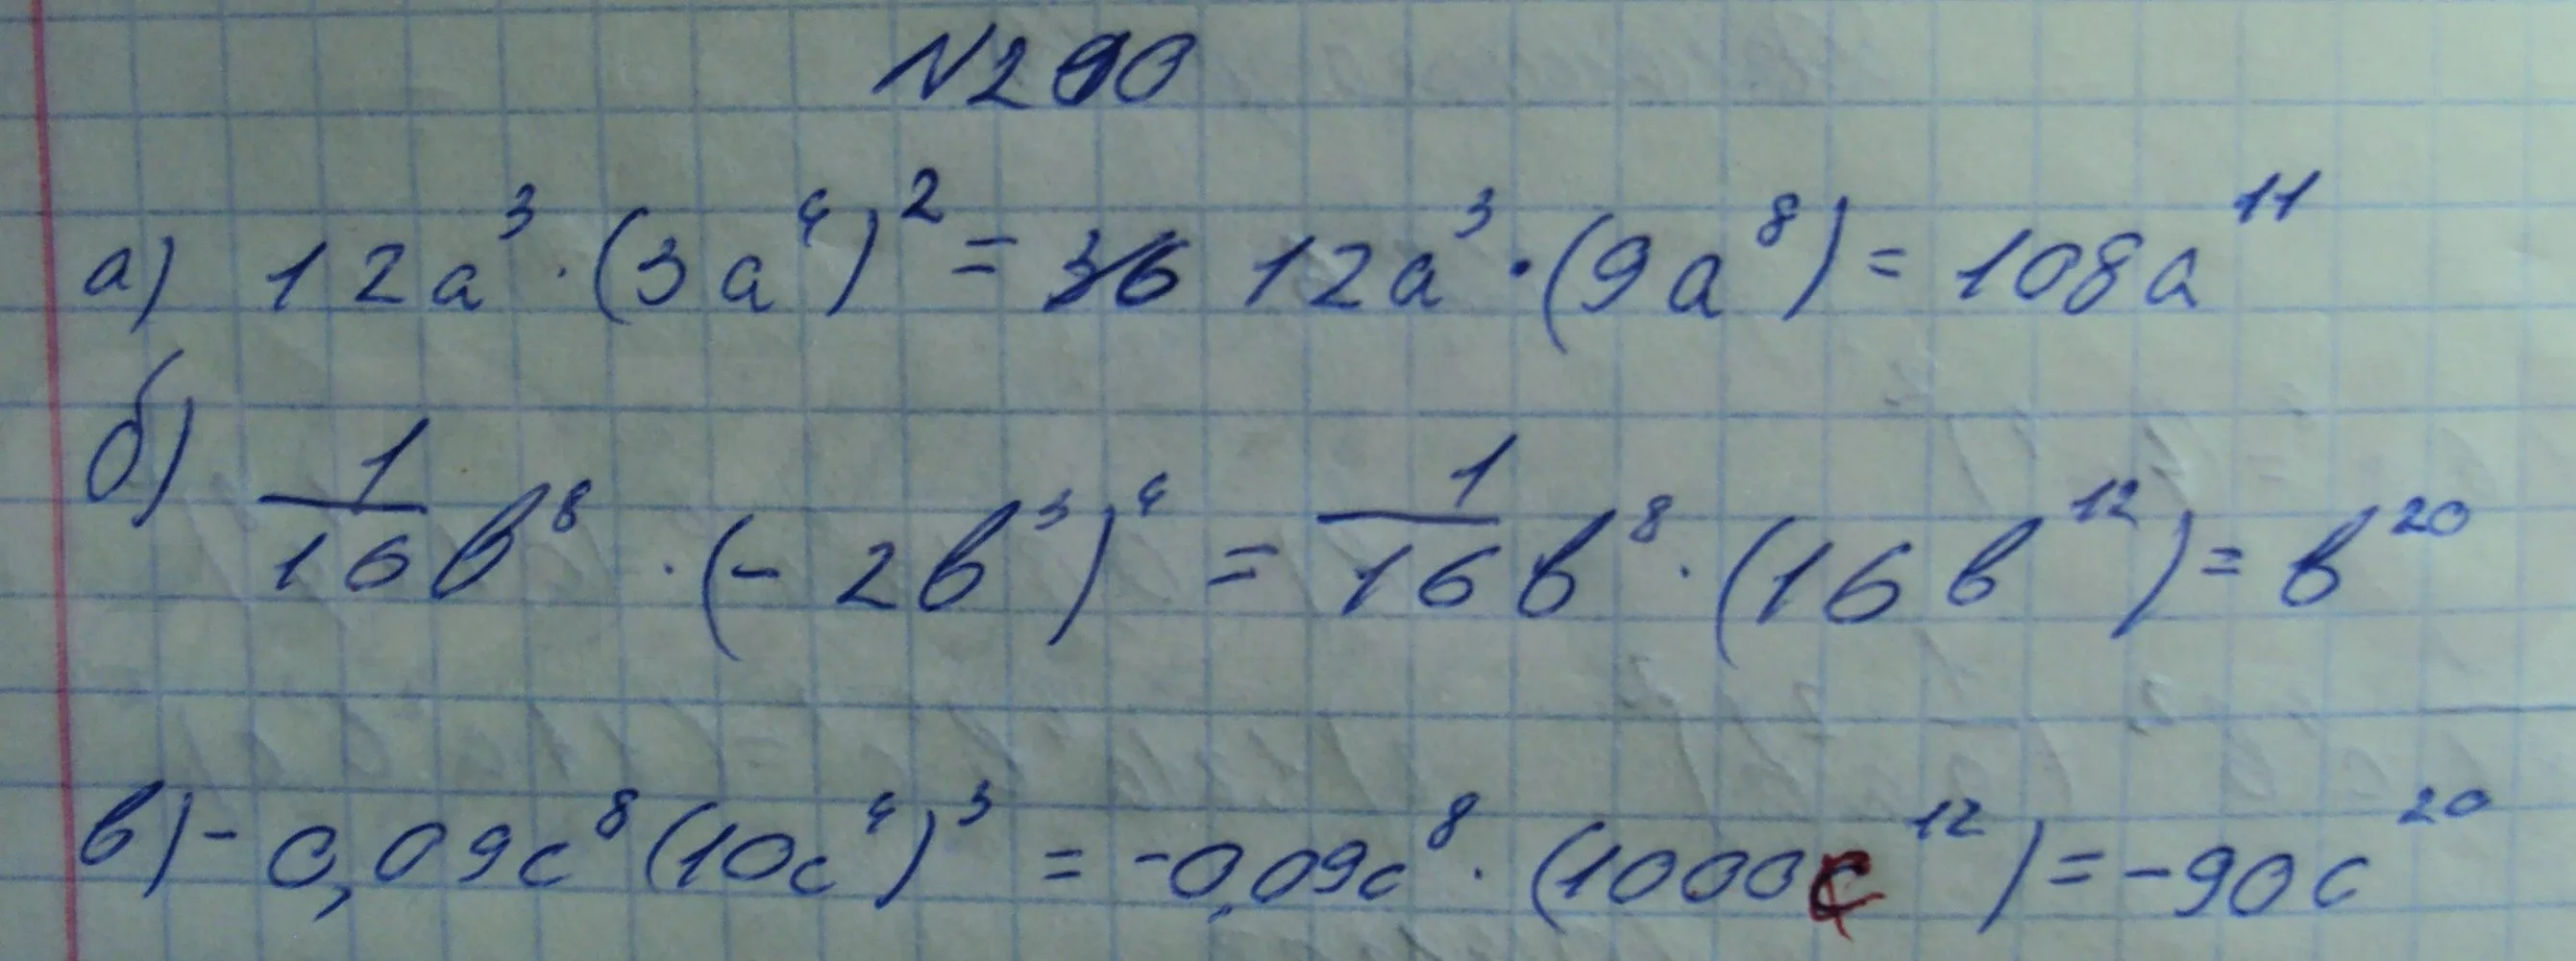 №290
а) 12a³ · (3a⁴)² = 12a³ · (9a⁸) = 108a¹¹
б) 1/16 b⁸ · (- 2b³)⁴ = 1/16 b⁸ · (16b¹²) = b²⁰
в) - 0,09c⁸ (10c⁴)³ = -0,09c⁸ · (1000c¹²) = -90c²⁰